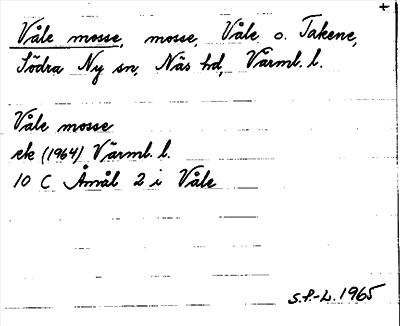 +
Våle mosse, mosse, Våle o. Takene,
Södra Ny sn, Näs hd, Värml. l.
Våle mosse
ek (1964) Värml. l.
10 C Åmål 2 i Våle
S.P.-L. 1965